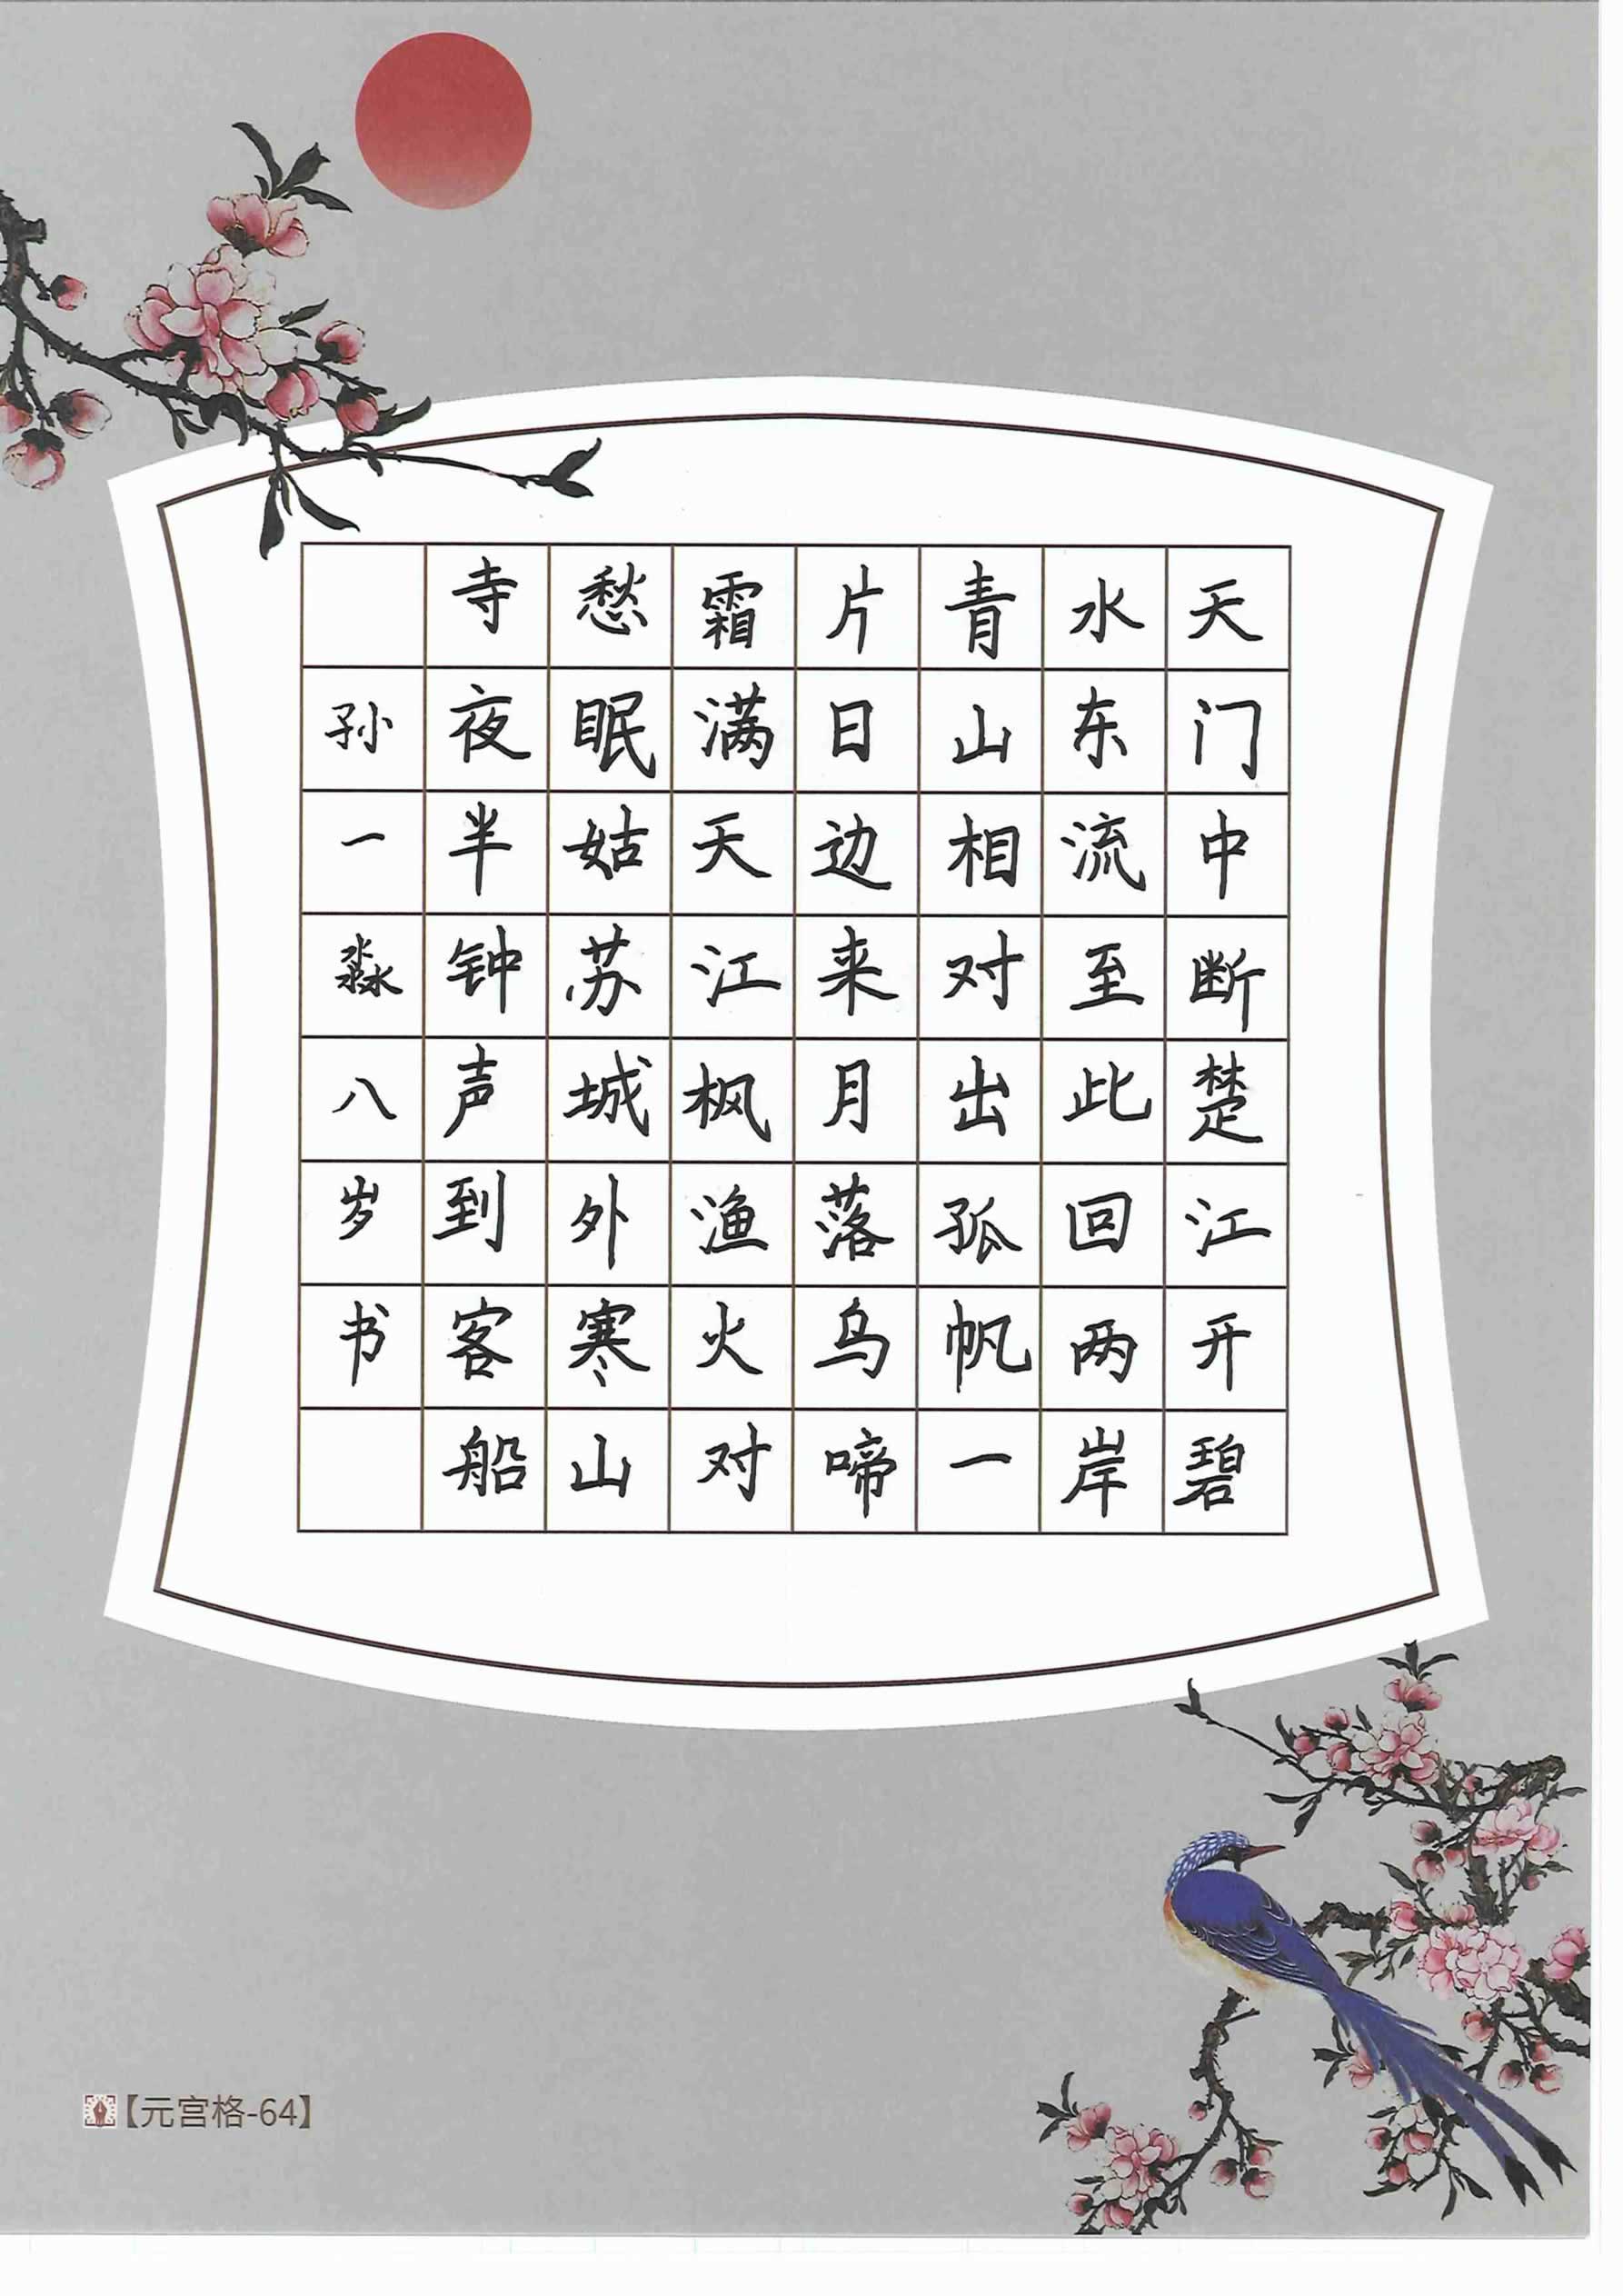 天门中断楚江开碧
水东流至此回两岸
青山相对出孤帆一
片日边来月落乌啼
霜满天江枫渔火对
愁眠姑苏城外寒山
寺夜半钟声到客船
孙一淼八岁书
【元宫格-64】